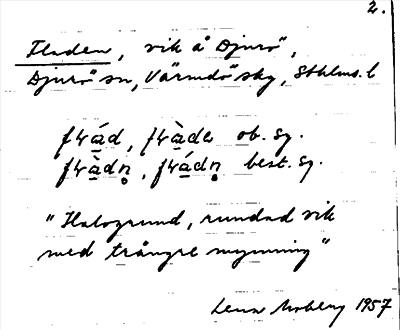 2.
Fladen, vik å Djurö,
Djurö sn, Värmdö skg, Sthlms. l
ob. sg.
best. sg.
"Halvgrund, rundad vik
med trängre mynning"
Lena Moberg 1957